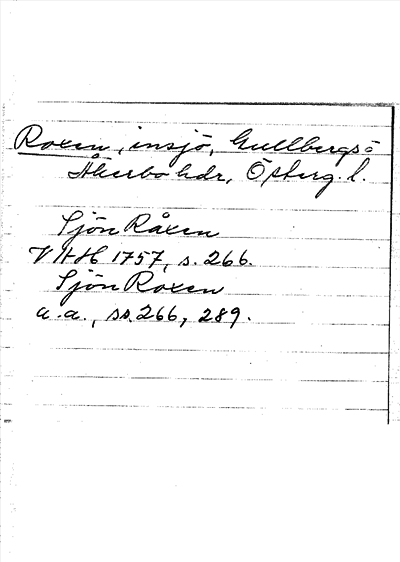 Roxen, insjö, Gullbergs o
Åkerbo hdr, Österg. l.
Sjön Råxen
VAH 1757, s. 266.
Sjön Roxen
a.a., ss. 266, 289.